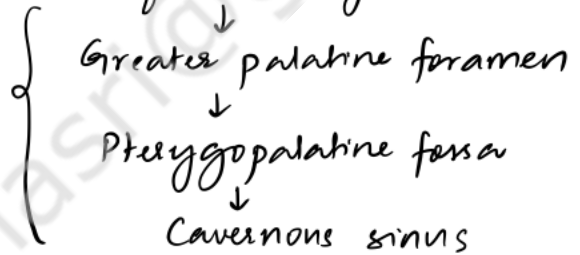 ↓
Greater palatine foramen
↓
Pterygopalatine fossa
↓
Cavernous sinus